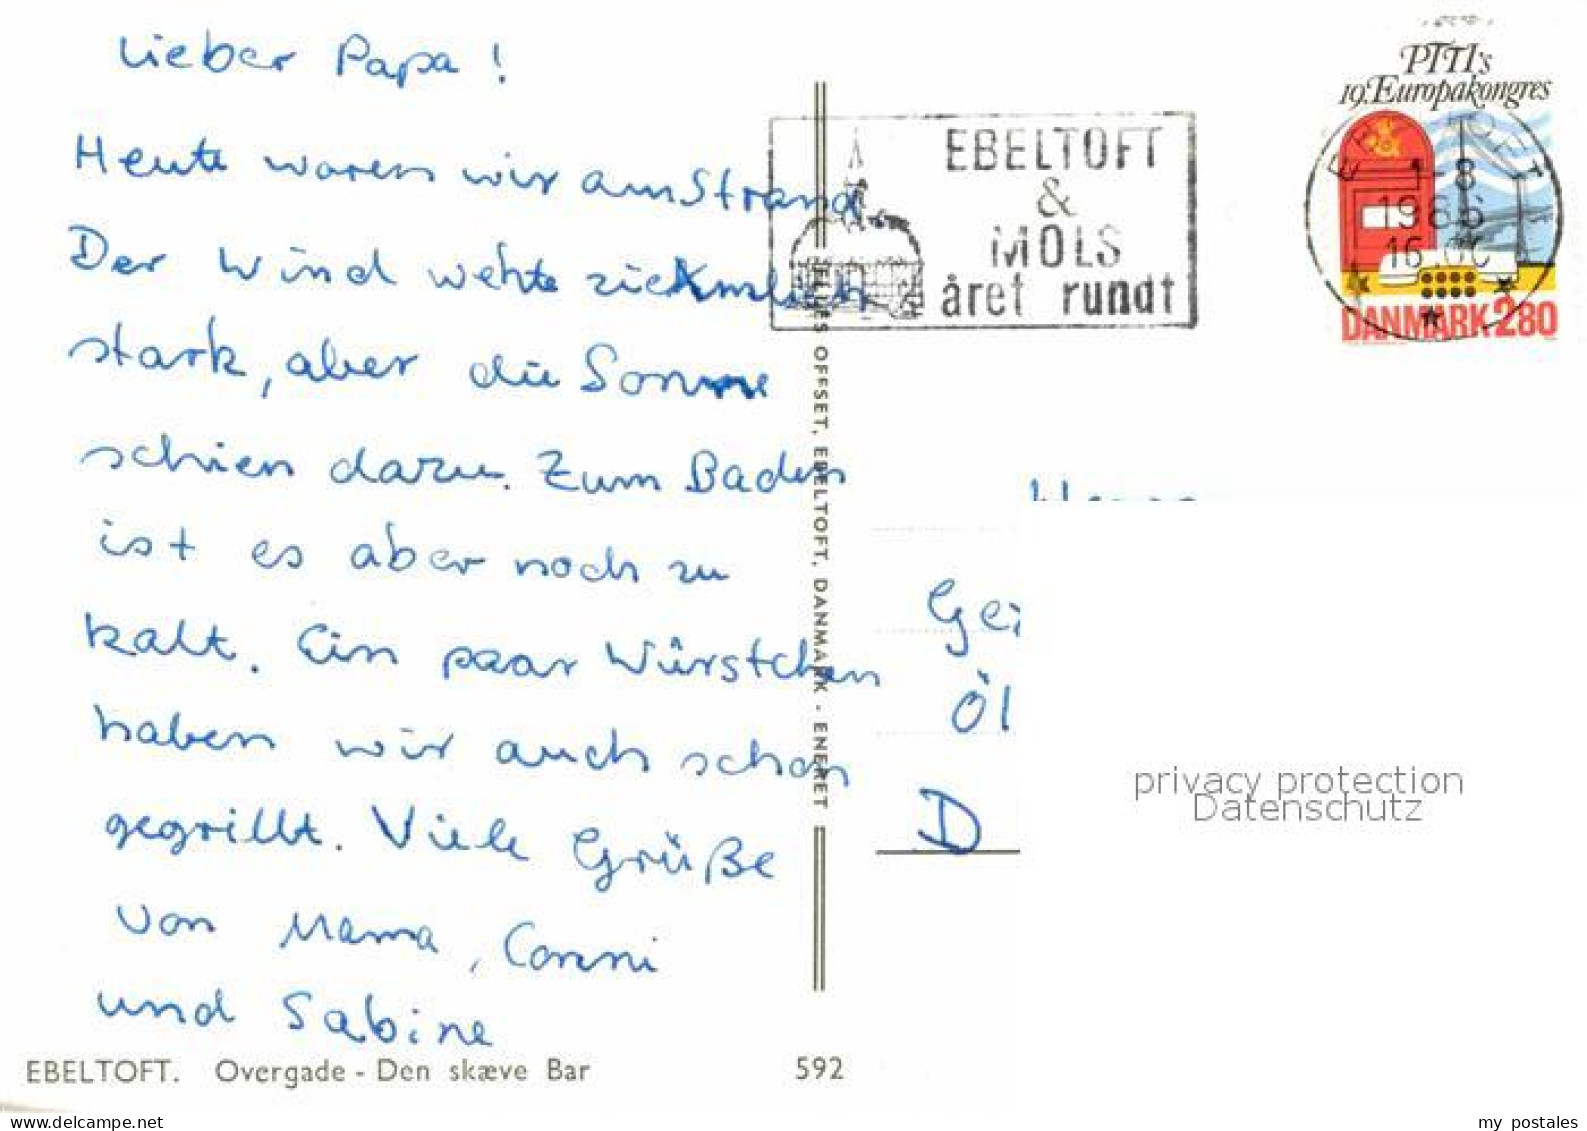 Lieber Papa!
Heute waren wir am Strand.
Der Wind wehte ziemlich
stark, aber die Sonne
schien dazu. Zum Baden
ist es aber noch zu
kalt. Ein paar Würstchen
haben wir auch schon
gegrillt. Viele Grüße
von Mama, Conni
und Sabine
EBELTOFT. Overgade - Den skæve Bar 592
OFFSET, EBELTOFT, DANMARK - ENERET
EBELTOFT
&
MOLS
året rundt
PTTI's
19. Europakongres
EBELTOFT
1-8
1986
16.00
DANMARK 2.80
Gei
Öl
D
privacy protection
Datenschutz
my postales